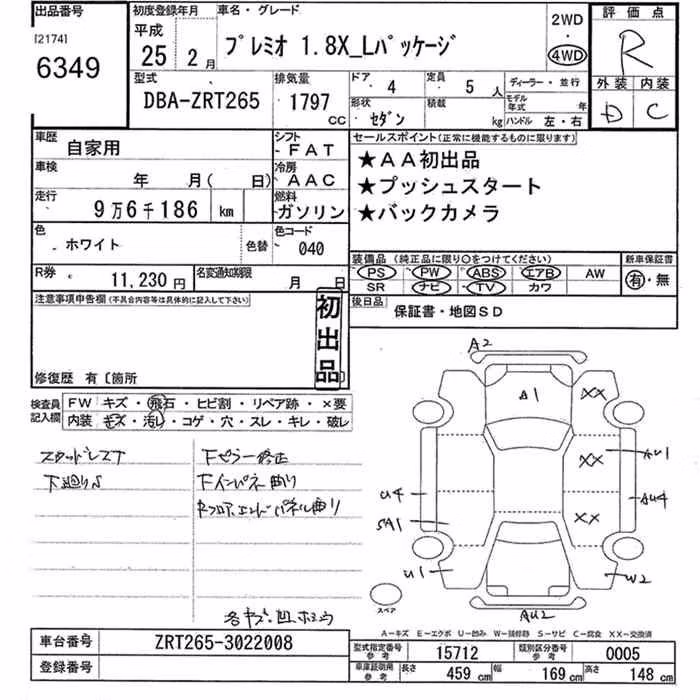 出品番号
[2174]
6349
初度登録年月
平成
25 2月
車名・グレード
プレミオ 1.8X_Lパッケージ
2WD
・
4WD
評価点
R
外装 内装
D C
型式
DBA-ZRT265
排気量
1797
CC
ドア 4
定員 5 人
形状 セダン
積載 kg
ディーラー・並行
モデル年式 年
ハンドル 左・右
車歴 自家用
シフト FAT
車検 年 月( 日)
冷房 AAC
走行 9万6千186 km
燃料 ガソリン
色 ホワイト 色替
色コード 040
R券 11,230円
名変通知期限 月 日
セールスポイント(正常に機能するものに限ります)
★AA初出品
★プッシュスタート
★バックカメラ
装備品(純正品に限り○をつけてください)
PS PW ABS エアB AW
SR ナビ TV カワ
新車保証書
有・無
後日品 保証書・地図SD
注意事項申告欄(不具合内容等は具体的に記入して下さい)
初出品
修復歴 有〔箇所 〕
検査員記入欄
FW キズ・飛石・ヒビ割・リペア跡・×要
内装 キズ・汚れ・コゲ・穴・スレ・キレ・破レ
スタッドレス
下廻りS
Fピラー修正
Fインパネ曲り
Rフロア,エンドパネル曲り
各キズ凹
A2
A1
XX
XX
AU1
U4
AU4
XX
SA1
U1
W2
スペア
AU2
A-キズ E-エクボ U-凹み W-補修跡 S-サビ C-腐食 XX-交換済
車台番号 ZRT265-3022008
登録番号
型式指定番号 参考 15712
類別区分番号 参考 0005
車庫証明用 参考 長さ 459 cm 幅 169 cm 高さ 148 cm